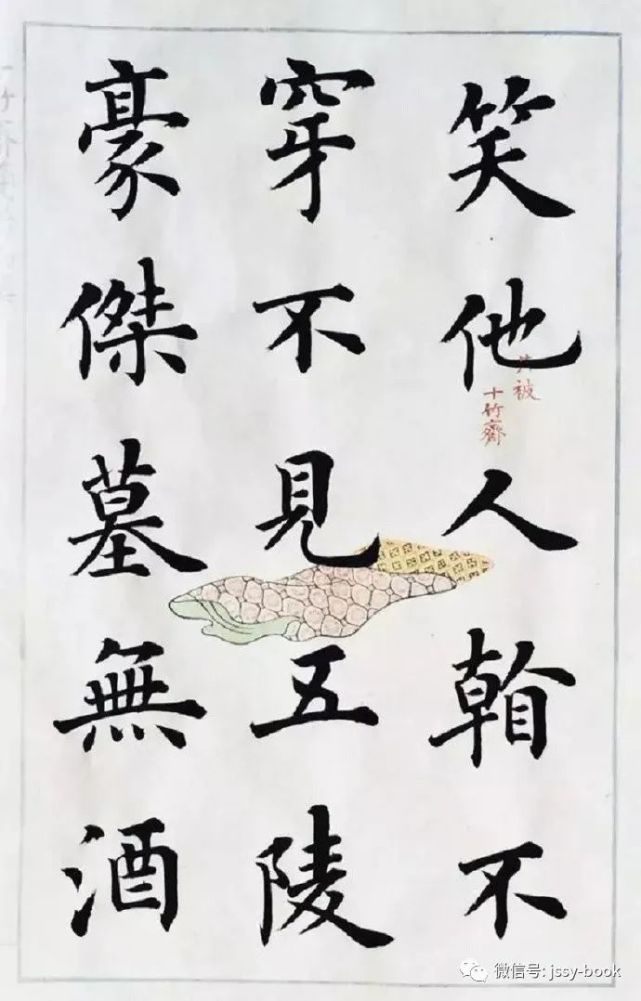 笑他人看不
穿不見五陵
豪傑墓無酒
共被
十竹齋
微信号: jssy-book